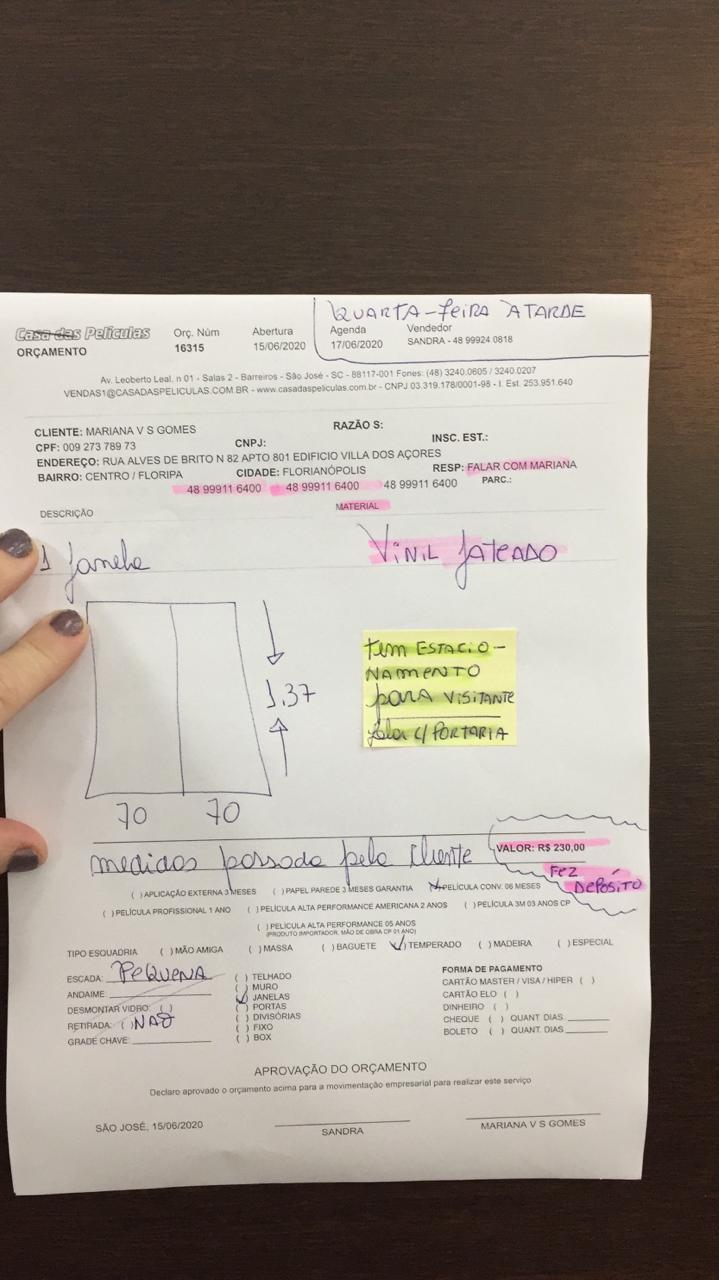 QUARTA-feira ATARDE
Casa das Películas Orç. Núm Abertura Agenda Vendedor
ORÇAMENTO 16315 15/06/2020 17/06/2020 SANDRA - 48 99924 0818
Av. Leoberto Leal, n 01 - Salas 2 - Barreiros - São José - SC - 88117-001 Fones: (48) 3240.0605 / 3240.0207
VENDAS1@CASADASPELICULAS.COM.BR - www.casadaspeliculas.com.br - CNPJ 03.319.178/0001-98 - I. Est. 253.951.640
CLIENTE: MARIANA V S GOMES RAZÃO S:
CPF: 009 273 789 73 CNPJ: INSC. EST.:
ENDEREÇO: RUA ALVES DE BRITO N 82 APTO 801 EDIFICIO VILLA DOS AÇORES
BAIRRO: CENTRO / FLORIPA CIDADE: FLORIANÓPOLIS RESP: FALAR COM MARIANA
48 99911 6400 48 99911 6400 48 99911 6400 PARC.:
DESCRIÇÃO MATERIAL
1 Janela VINIL JATEADO
tem ESTACIO-
NAMENTO
para VISITANTE
fala c/ PORTARIA
1,37
70 70
medidas passada pelo cliente VALOR: R$ 230,00
FEZ
DEPÓSITO
( ) APLICAÇÃO EXTERNA 3 MESES ( ) PAPEL PAREDE 3 MESES GARANTIA PELÍCULA CONV. 06 MESES
( ) PELÍCULA PROFISSIONAL 1 ANO ( ) PELÍCULA ALTA PERFORMANCE AMERICANA 2 ANOS ( ) PELÍCULA 3M 03 ANOS CP
( ) PELÍCULA ALTA PERFORMANCE 05 ANOS
(PRODUTO IMPORTADOR, MÃO DE OBRA CP 01 ANO)
TIPO ESQUADRIA ( ) MÃO AMIGA ( ) MASSA ( ) BAGUETE ( ) TEMPERADO ( ) MADEIRA ( ) ESPECIAL
ESCADA: PEQUENA
ANDAIME:
DESMONTAR VIDRO: ( )
RETIRADA: ( ) NAO
GRADE CHAVE:
( ) TELHADO
( ) MURO
( ) JANELAS
( ) PORTAS
( ) DIVISÓRIAS
( ) FIXO
( ) BOX
FORMA DE PAGAMENTO
CARTÃO MASTER / VISA / HIPER ( )
CARTÃO ELO ( )
DINHEIRO ( )
CHEQUE ( ) QUANT. DIAS
BOLETO ( ) QUANT. DIAS
APROVAÇÃO DO ORÇAMENTO
Declaro aprovado o orçamento acima para a movimentação empresarial para realizar este serviço
SÃO JOSÉ, 15/06/2020 SANDRA MARIANA V S GOMES